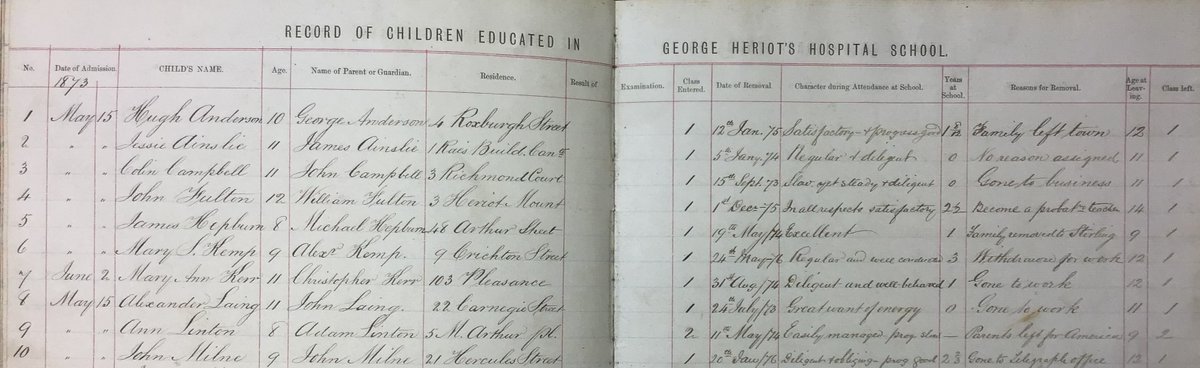 RECORD OF CHILDREN EDUCATED IN GEORGE HERIOT'S HOSPITAL SCHOOL.
No. Date of Admission. CHILD'S NAME. Age. Name of Parent or Guardian. Residence. Result of Examination. Class Entered. Date of Removal Character during Attendance at School. Years at School. Reasons for Removal. Age at Leaving. Class left.
1873
1 May 15 Hugh Anderson 10 George Anderson 4 Roxburgh Street 1 12th Jan. 75 Satisfactory & progress good 1 8/12 Family left town 12 1
2 " " Jessie Ainslie 11 James Ainslie 1 Build. 1 5th Jany. 74 Regular & diligent 0 No reason assigned 11 1
3 " " Colin Campbell 11 John Campbell 3 Richmond Court 1 15th Sept. 73 Slow, yet steady & diligent 0 Gone to business 11 1
4 " " John Fulton 12 William Fulton 3 Heriot Mount 1 1st Decr. 75 In all respects satisfactory 2 1/2 Become a probatr. teacher 14 1
5 " " James Hepburn 8 Michael Hepburn 48 Arthur Street 1 19th May/74 Excellent 1 Family removed to Stirling 9 1
6 " " Mary S. Kemp 9 Alexr Kemp. 9 Crichton Street 1 24th May-76 Regular and well conducted 3 Withdrawn for work 12 1
7 June 2 Mary Ann Kerr 11 Christopher Kerr 103 Pleasance 1 31st Aug/74 Diligent and well behaved 1 Gone to work 12 1
8 May 15 Alexander Laing 11 John Laing. 22 Carnegie Street 1 24th July/73 Great want of energy 0 Gone to work 11 1
9 " " Ann Linton 8 Adam Linton 5 M. Arthur pl. 2 11th May/74 Easily managed prog. slow — Parents left for America 9 2
10 " " John Milne 9 John Milne 21 Hercules Street 1 20th Jany/76 Diligent & obliging - prog good 2 Gone to Telegraph office 12 1